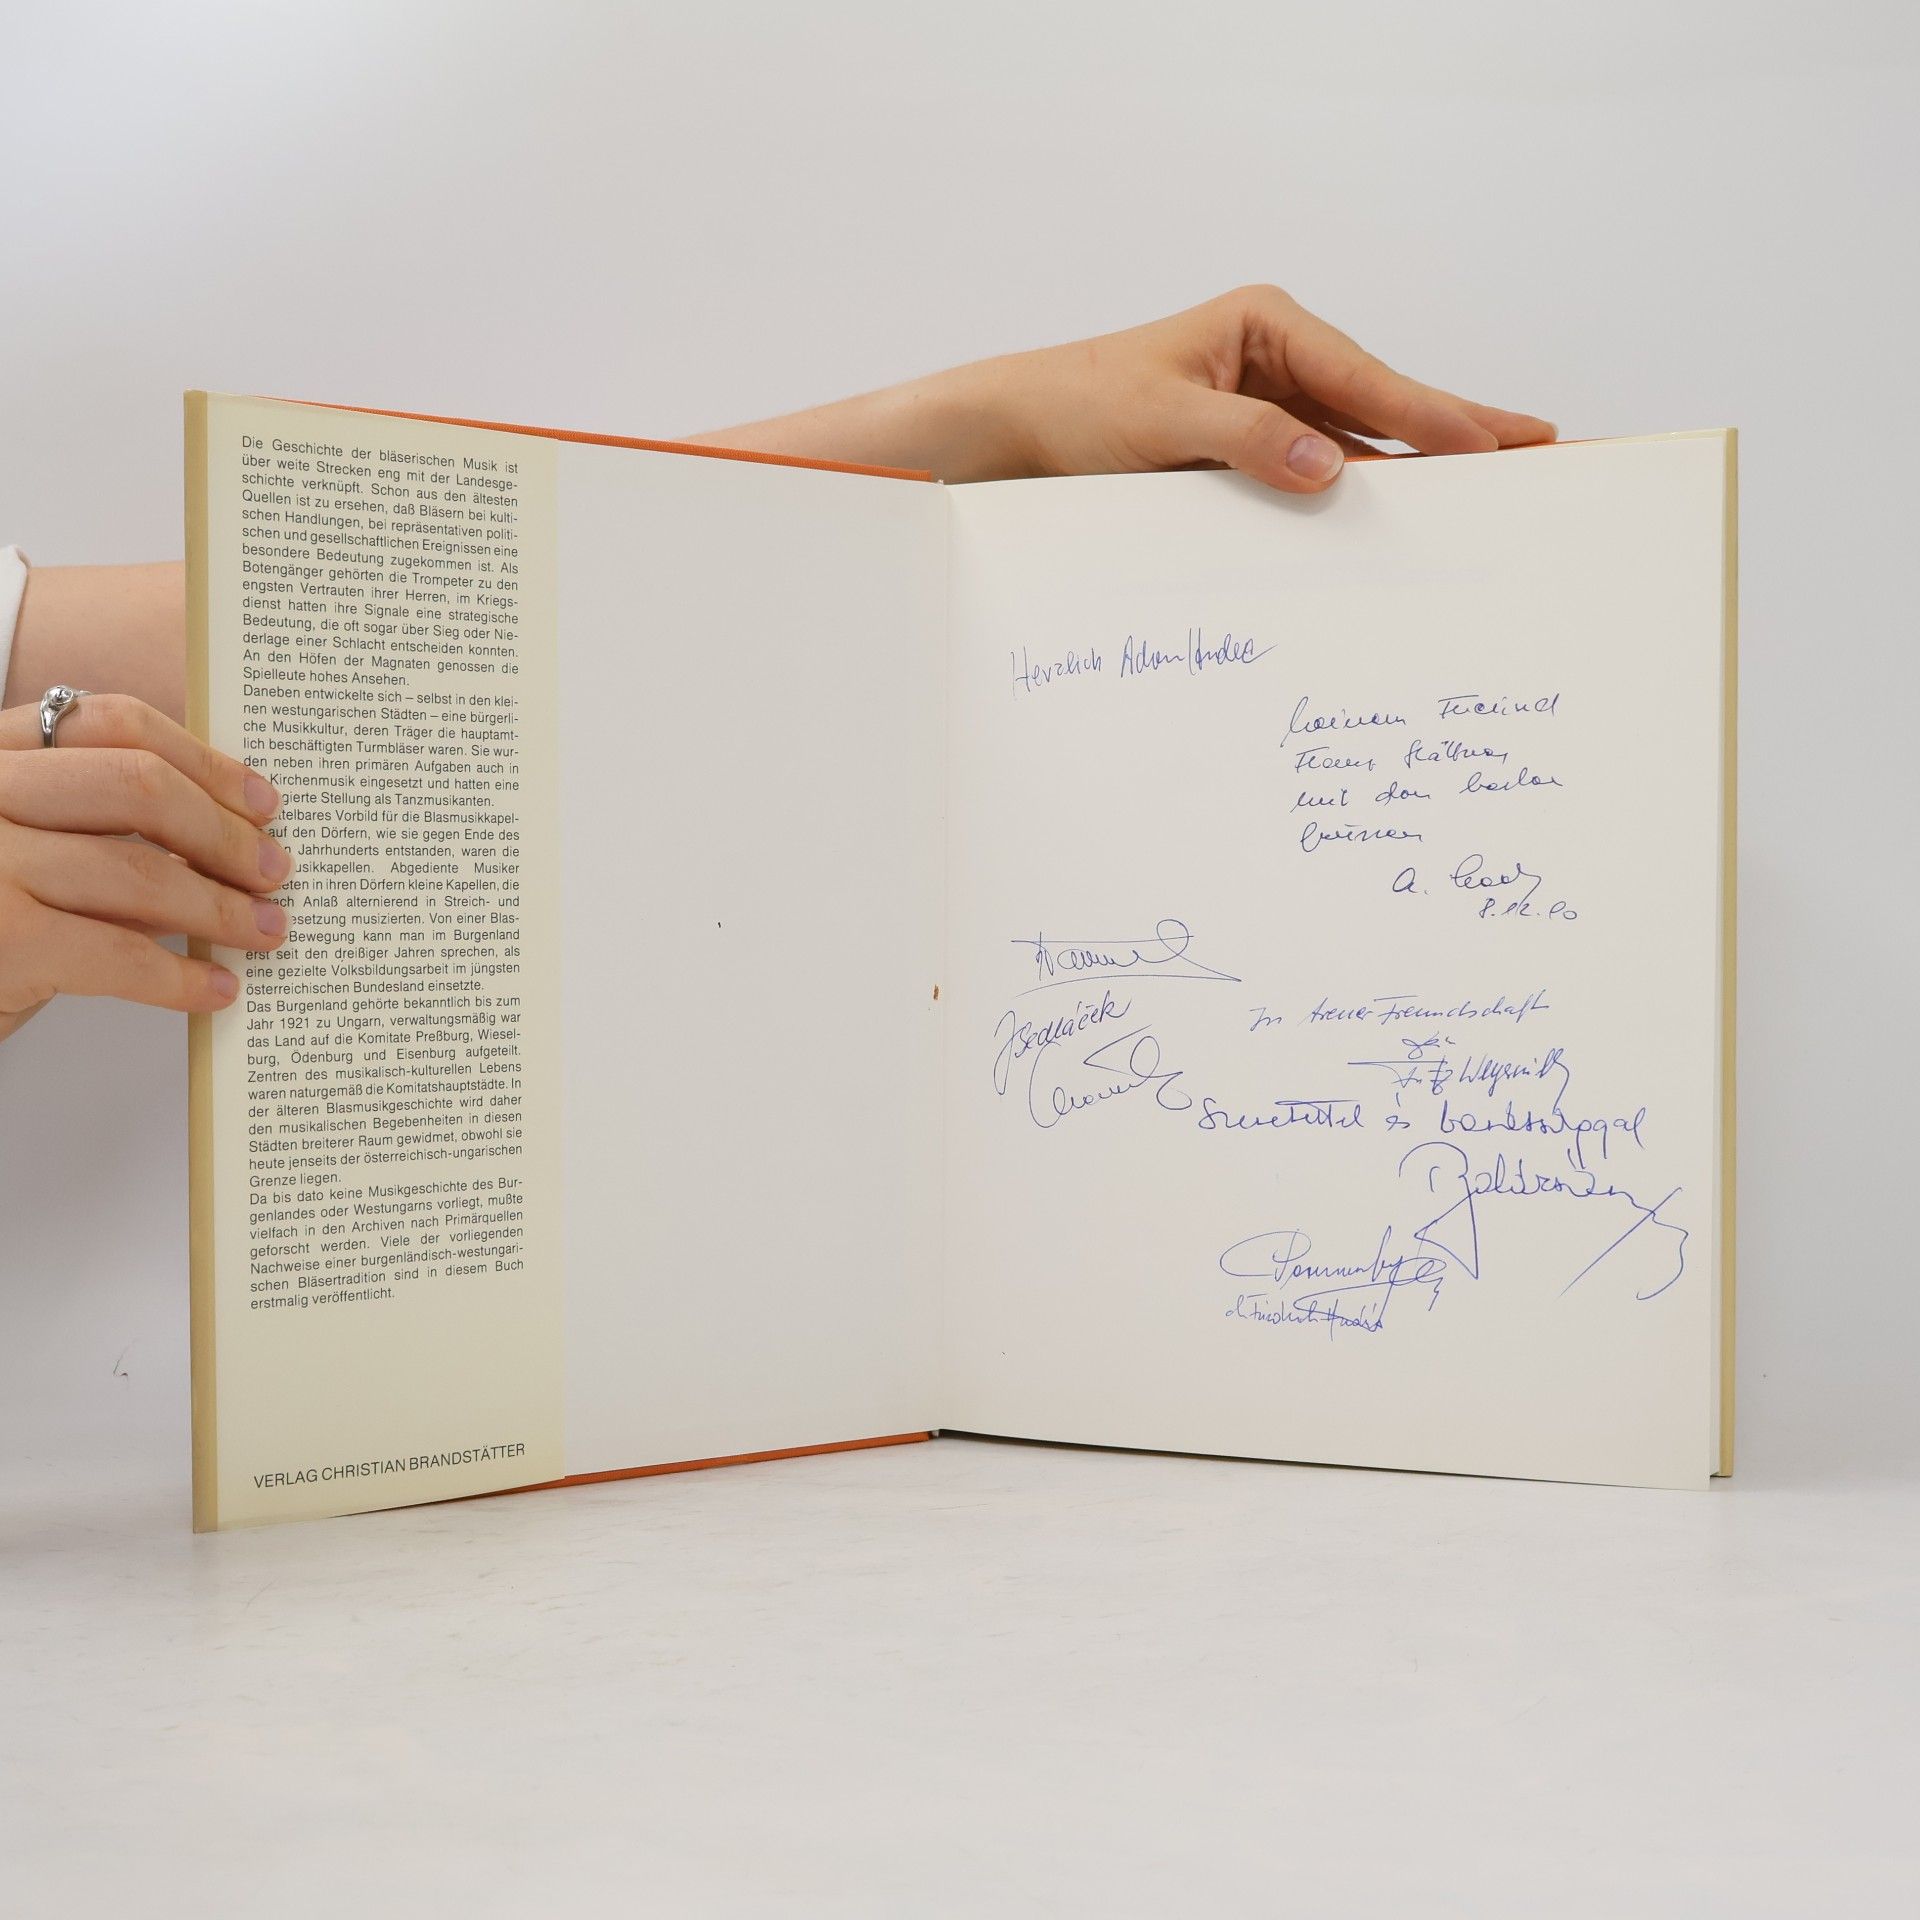 Die Geschichte der bläserischen Musik ist
über weite Strecken eng mit der Landesge-
schichte verknüpft. Schon aus den ältesten
Quellen ist zu ersehen, daß Bläsern bei kulti-
schen Handlungen, bei repräsentativen politi-
schen und gesellschaftlichen Ereignissen eine
besondere Bedeutung zugekommen ist. Als
Botengänger gehörten die Trompeter zu den
engsten Vertrauten ihrer Herren, im Kriegs-
dienst hatten ihre Signale eine strategische
Bedeutung, die oft sogar über Sieg oder Nie-
derlage einer Schlacht entscheiden konnten.
An den Höfen der Magnaten genossen die
Spielleute hohes Ansehen.
Daneben entwickelte sich – selbst in den klei-
nen westungarischen Städten – eine bürgerli-
che Musikkultur, deren Träger die hauptamt-
lich beschäftigten Turmbläser waren. Sie wur-
den neben ihren primären Aufgaben auch in
Kirchenmusik eingesetzt und hatten eine
gierte Stellung als Tanzmusikanten.
telbares Vorbild für die Blasmusikkapel-
auf den Dörfern, wie sie gegen Ende des
Jahrhunderts entstanden, waren die
usikkapellen. Abgediente Musiker
eten in ihren Dörfern kleine Kapellen, die
nach Anlaß alternierend in Streich- und
esetzung musizierten. Von einer Blas-
Bewegung kann man im Burgenland
erst seit den dreißiger Jahren sprechen, als
eine gezielte Volksbildungsarbeit im jüngsten
österreichischen Bundesland einsetzte.
Das Burgenland gehörte bekanntlich bis zum
Jahr 1921 zu Ungarn, verwaltungsmäßig war
das Land auf die Komitate Preßburg, Wiesel-
burg, Ödenburg und Eisenburg aufgeteilt.
Zentren des musikalisch-kulturellen Lebens
waren naturgemäß die Komitatshauptstädte. In
der älteren Blasmusikgeschichte wird daher
den musikalischen Begebenheiten in diesen
Städten breiterer Raum gewidmet, obwohl sie
heute jenseits der österreichisch-ungarischen
Grenze liegen.
Da bis dato keine Musikgeschichte des Bur-
genlandes oder Westungarns vorliegt, mußte
vielfach in den Archiven nach Primärquellen
geforscht werden. Viele der vorliegenden
Nachweise einer burgenländisch-westungari-
schen Bläsertradition sind in diesem Buch
erstmalig veröffentlicht.
VERLAG CHRISTIAN BRANDSTÄTTER
Herzlich
meinem Freund
Franz
mit den besten
Grüssen
A.
8.12.90
JSedláček
In treuer Freundschaft
Szeretettel és barátsággal